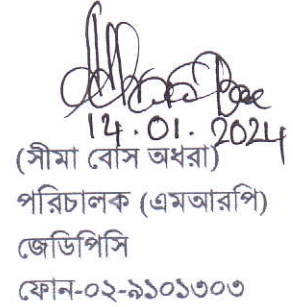 14.01.2024
(সীমা বোস অধরা)
পরিচালক (এমআরপি)
জেডিপিসি
ফোন-০২-৯১০১৩০৩